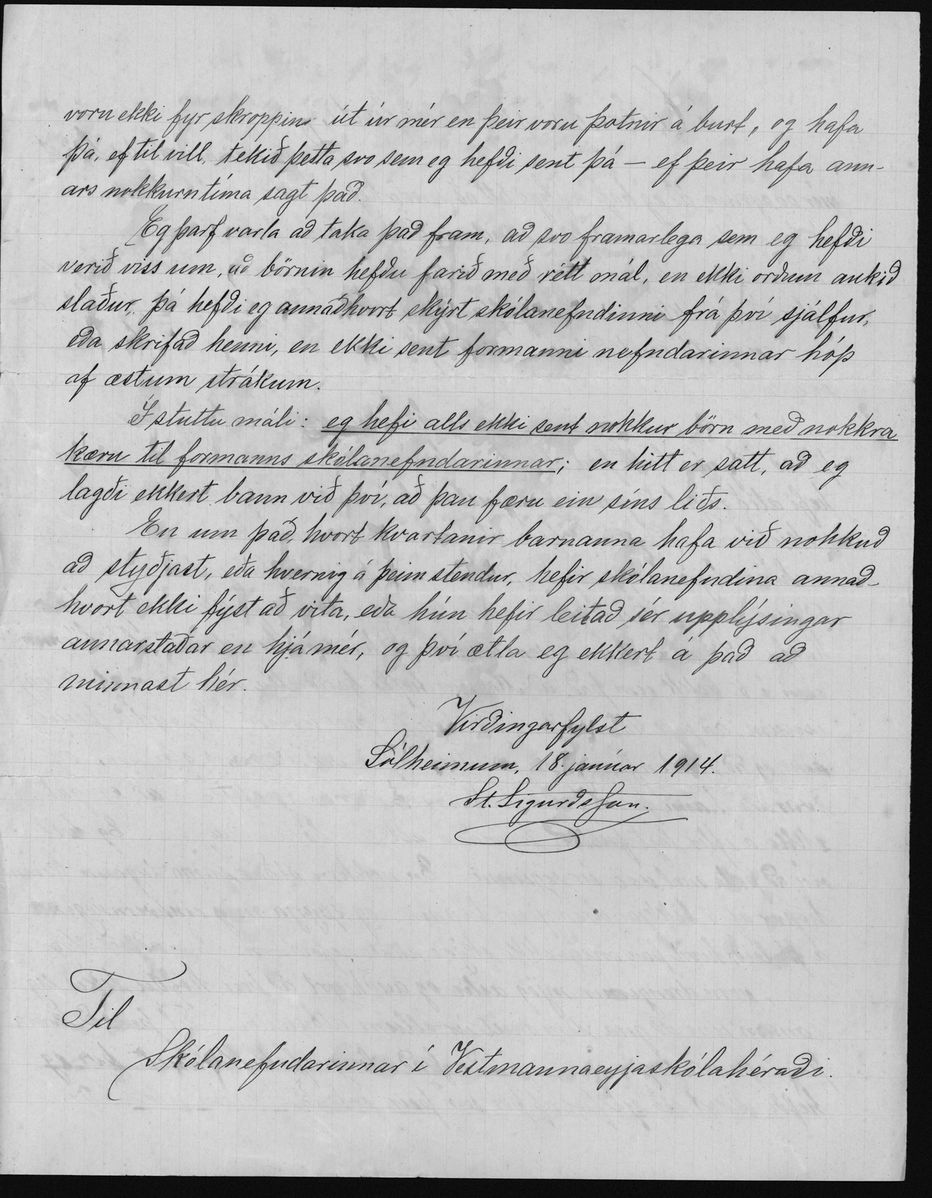 voru ekki fyr skroppin út úr mér en þeir voru þotnir á burt, og hafa
þá, ef til vill, tekið þetta svo sem eg hefði sent þá — ef þeir hafa ann-
ars nokkurn tíma sagt það.
Eg þarf varla að taka það fram, að svo framarlega sem eg hefði
verið viss um, að börnin hefðu farið með rétt mál, en ekki orðum aukið
slaður, þá hefði eg annaðhvort skýrt skólanefndinni frá því sjálfur,
eða skrifað henni, en ekki sent formanni nefndarinnar hóp
af æstum strákum.
Í stuttu máli: eg hefi alls ekki sent nokkur börn með nokkra
kæru til formanns skólanefndarinnar; en hitt er satt, að eg
lagði ekkert bann við því, að þau færu ein síns liðs.
En um það, hvort kvartanir barnanna hafa við nokkuð
að styðjast, eða hvernig á þeim stendur, hefir skólanefndina annað-
hvort ekki fýst að vita, eða hún hefir leitað sér upplýsingar
annarstaðar en hjá mér, og því ætla eg ekkert á það að
minnast hér.
Virðingarfylst
Sólheimum, 18. janúar 1914.
St. Sigurðsson.
Til
Skólanefndarinnar í Vestmannaeyjaskólahéraði.